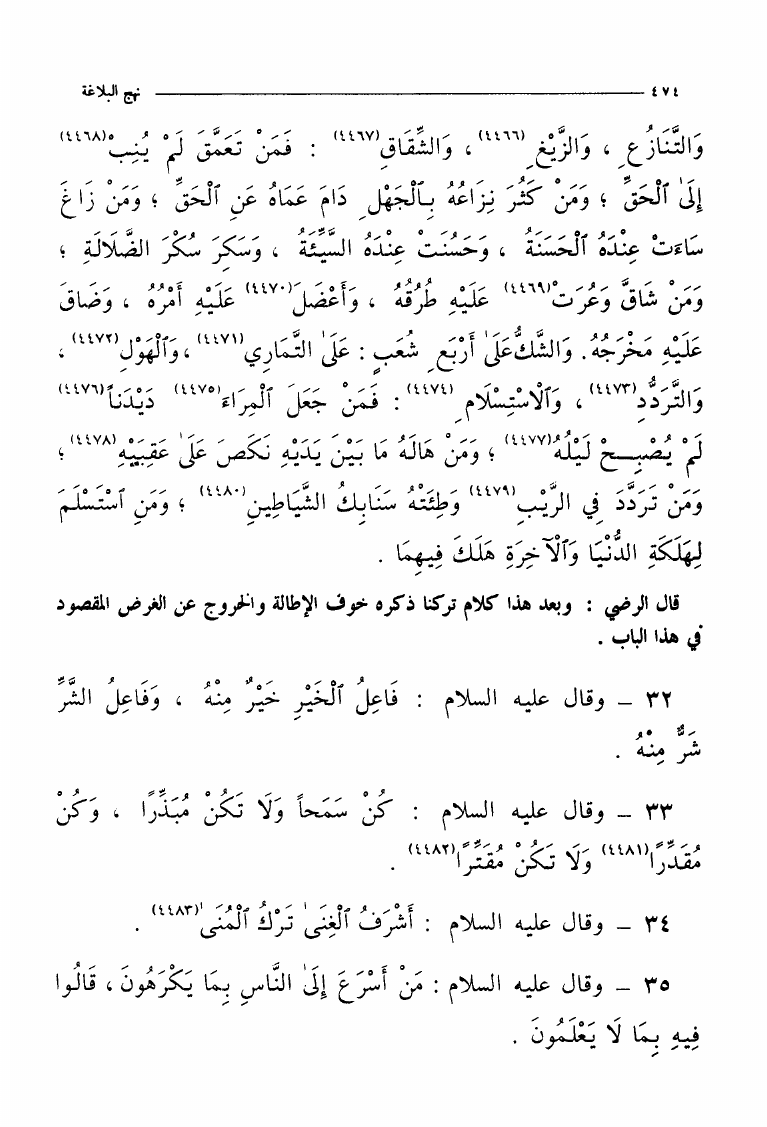 ٤٧٤ نهج البلاغة
وَالتَّنَازُعِ ، وَالزَّيْغِ(٤٤٦٦) ، وَالشِّقَاقِ(٤٤٦٧) : فَمَنْ تَعَمَّقَ لَمْ يُنِبْ(٤٤٦٨)
إِلَىٰ ٱلْحَقِّ ؛ وَمَنْ كَثُرَ نِزَاعُهُ بِٱلْجَهْلِ دَامَ عَمَاهُ عَنِ ٱلْحَقِّ ؛ وَمَنْ زَاغَ
سَاءَتْ عِنْدَهُ ٱلْحَسَنَةُ ، وَحَسُنَتْ عِنْدَهُ السَّيِّئَةُ ، وَسَكِرَ سُكْرَ الضَّلَالَةِ ؛
وَمَنْ شَاقَّ وَعُرَتْ(٤٤٦٩) عَلَيْهِ طُرُقُهُ ، وَأَعْضَلَ(٤٤٧٠) عَلَيْهِ أَمْرُهُ ، وَضَاقَ
عَلَيْهِ مَخْرَجُهُ. وَالشَّكُّ عَلَىٰ أَرْبَعِ شُعَبٍ : عَلَىٰ التَّمَارِي(٤٤٧١) ، وَٱلْهَوْلِ(٤٤٧٢) ،
وَالتَّرَدُّدِ(٤٤٧٣) ، وَٱلْاسْتِسْلَامِ(٤٤٧٤) : فَمَنْ جَعَلَ ٱلْمِرَاءَ(٤٤٧٥) دَيْدَناً(٤٤٧٦)
لَمْ يُصْبِحْ لَيْلُهُ(٤٤٧٧) ؛ وَمَنْ هَالَهُ مَا بَيْنَ يَدَيْهِ نَكَصَ عَلَىٰ عَقِبَيْهِ(٤٤٧٨) ؛
وَمَنْ تَرَدَّدَ فِي الرَّيْبِ(٤٤٧٩) وَطِئَتْهُ سَنَابِكُ الشَّيَاطِينِ(٤٤٨٠) ؛ وَمَنِ ٱسْتَسْلَمَ
لِهَلَكَةِ الدُّنْيَا وَٱلْآخِرَةِ هَلَكَ فِيهِمَا .
قال الرضي : وبعد هذا كلام تركنا ذكره خوف الإطالة والخروج عن الغرض المقصود
في هذا الباب .
٣٢ – وقال عليه السلام : فَاعِلُ ٱلْخَيْرِ خَيْرٌ مِنْهُ ، وَفَاعِلُ الشَّرِّ
شَرٌّ مِنْهُ .
٣٣ – وقال عليه السلام : كُنْ سَمَحاً وَلَا تَكُنْ مُبَذِّرًا ، وَكُنْ
مُقَدِّرًا(٤٤٨١) وَلَا تَكُنْ مُقَتِّرًا(٤٤٨٢) .
٣٤ – وقال عليه السلام : أَشْرَفُ ٱلْغِنَىٰ تَرْكُ ٱلْمُنَىٰ(٤٤٨٣) .
٣٥ – وقال عليه السلام : مَنْ أَسْرَعَ إِلَىٰ النَّاسِ بِمَا يَكْرَهُونَ ، قَالُوا
فِيهِ بِمَا لَا يَعْلَمُونَ .